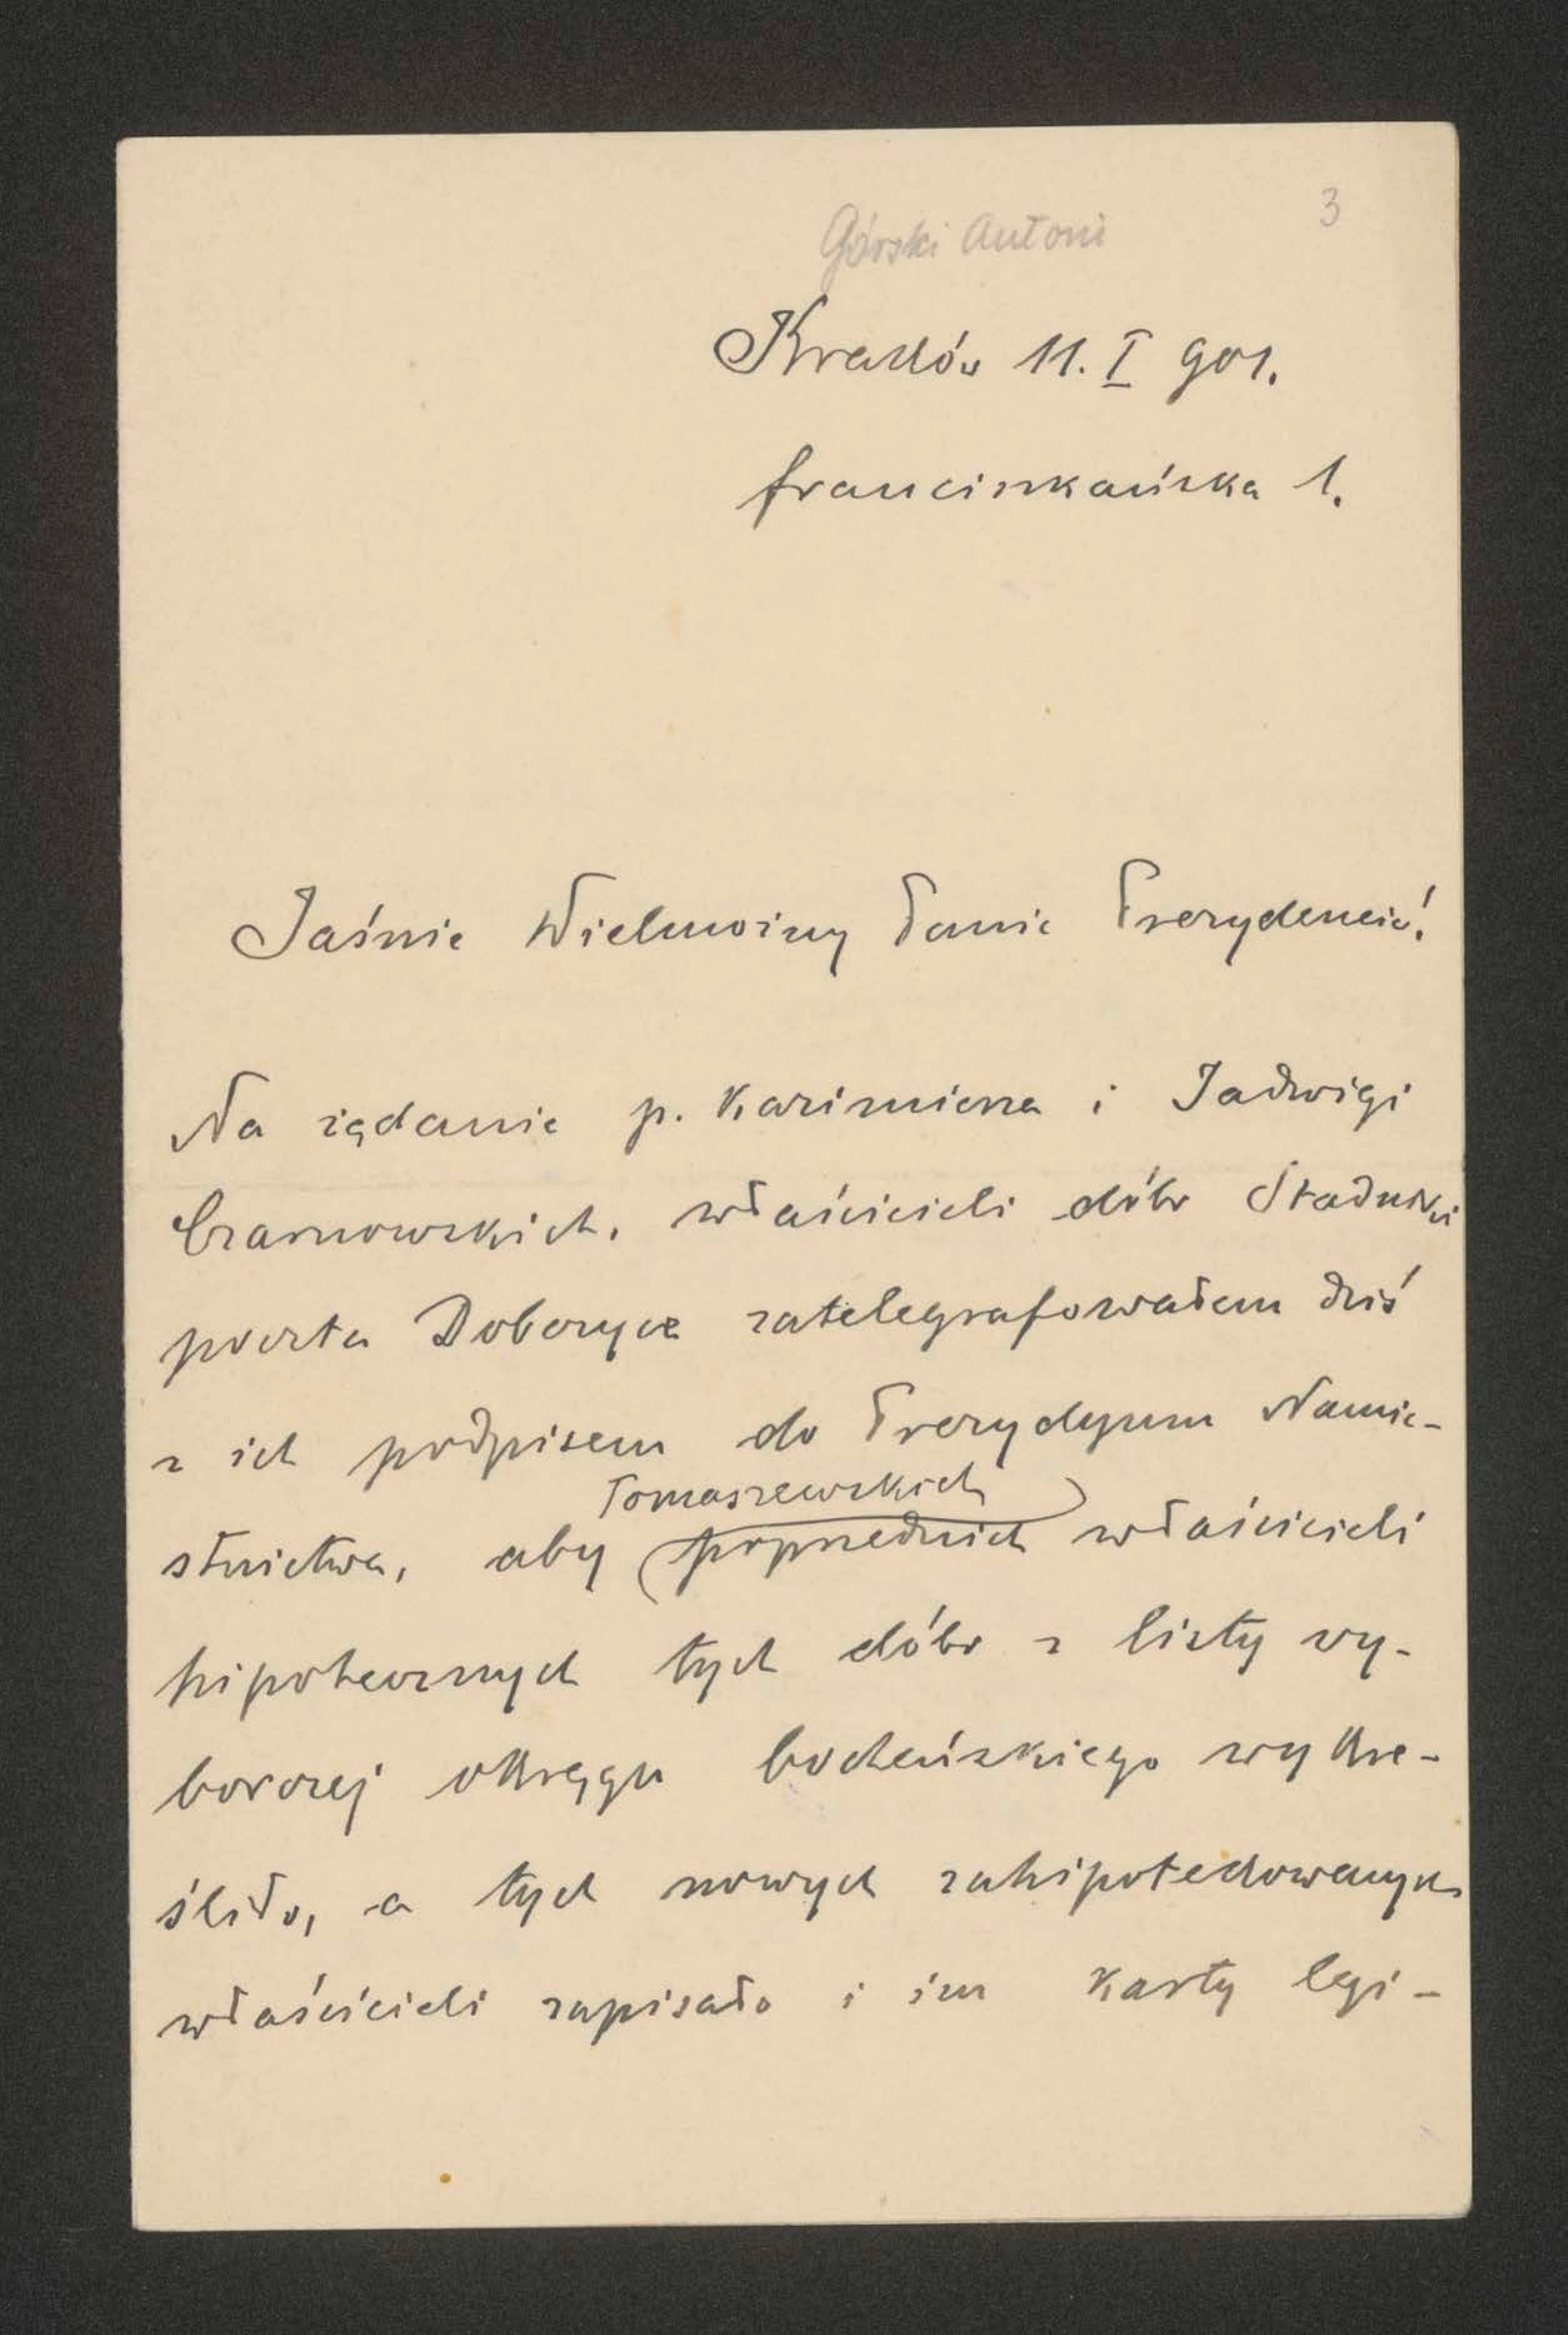 3
Górski Antoni
Kraków 11. I 901.
franciszkańska 1.
Jaśnie Wielmożny Panie Prezydencie!
Na żądanie p. Kazimierza i Jadwigi
Czarnowskich, właścicieli dóbr Stadniki
poczta Dobczyce zatelegrafowałem dziś
z ich podpisem do Prezydyum Namie-
stnictwa, aby (poprzednich właścicieli
Tomaszewskich)
hipotecznych tych dóbr z listy wy-
borczej okręgu bocheńskiego wykre-
śliło, a tych nowych zahipotekowanych
właścicieli zapisało i im karty legi-